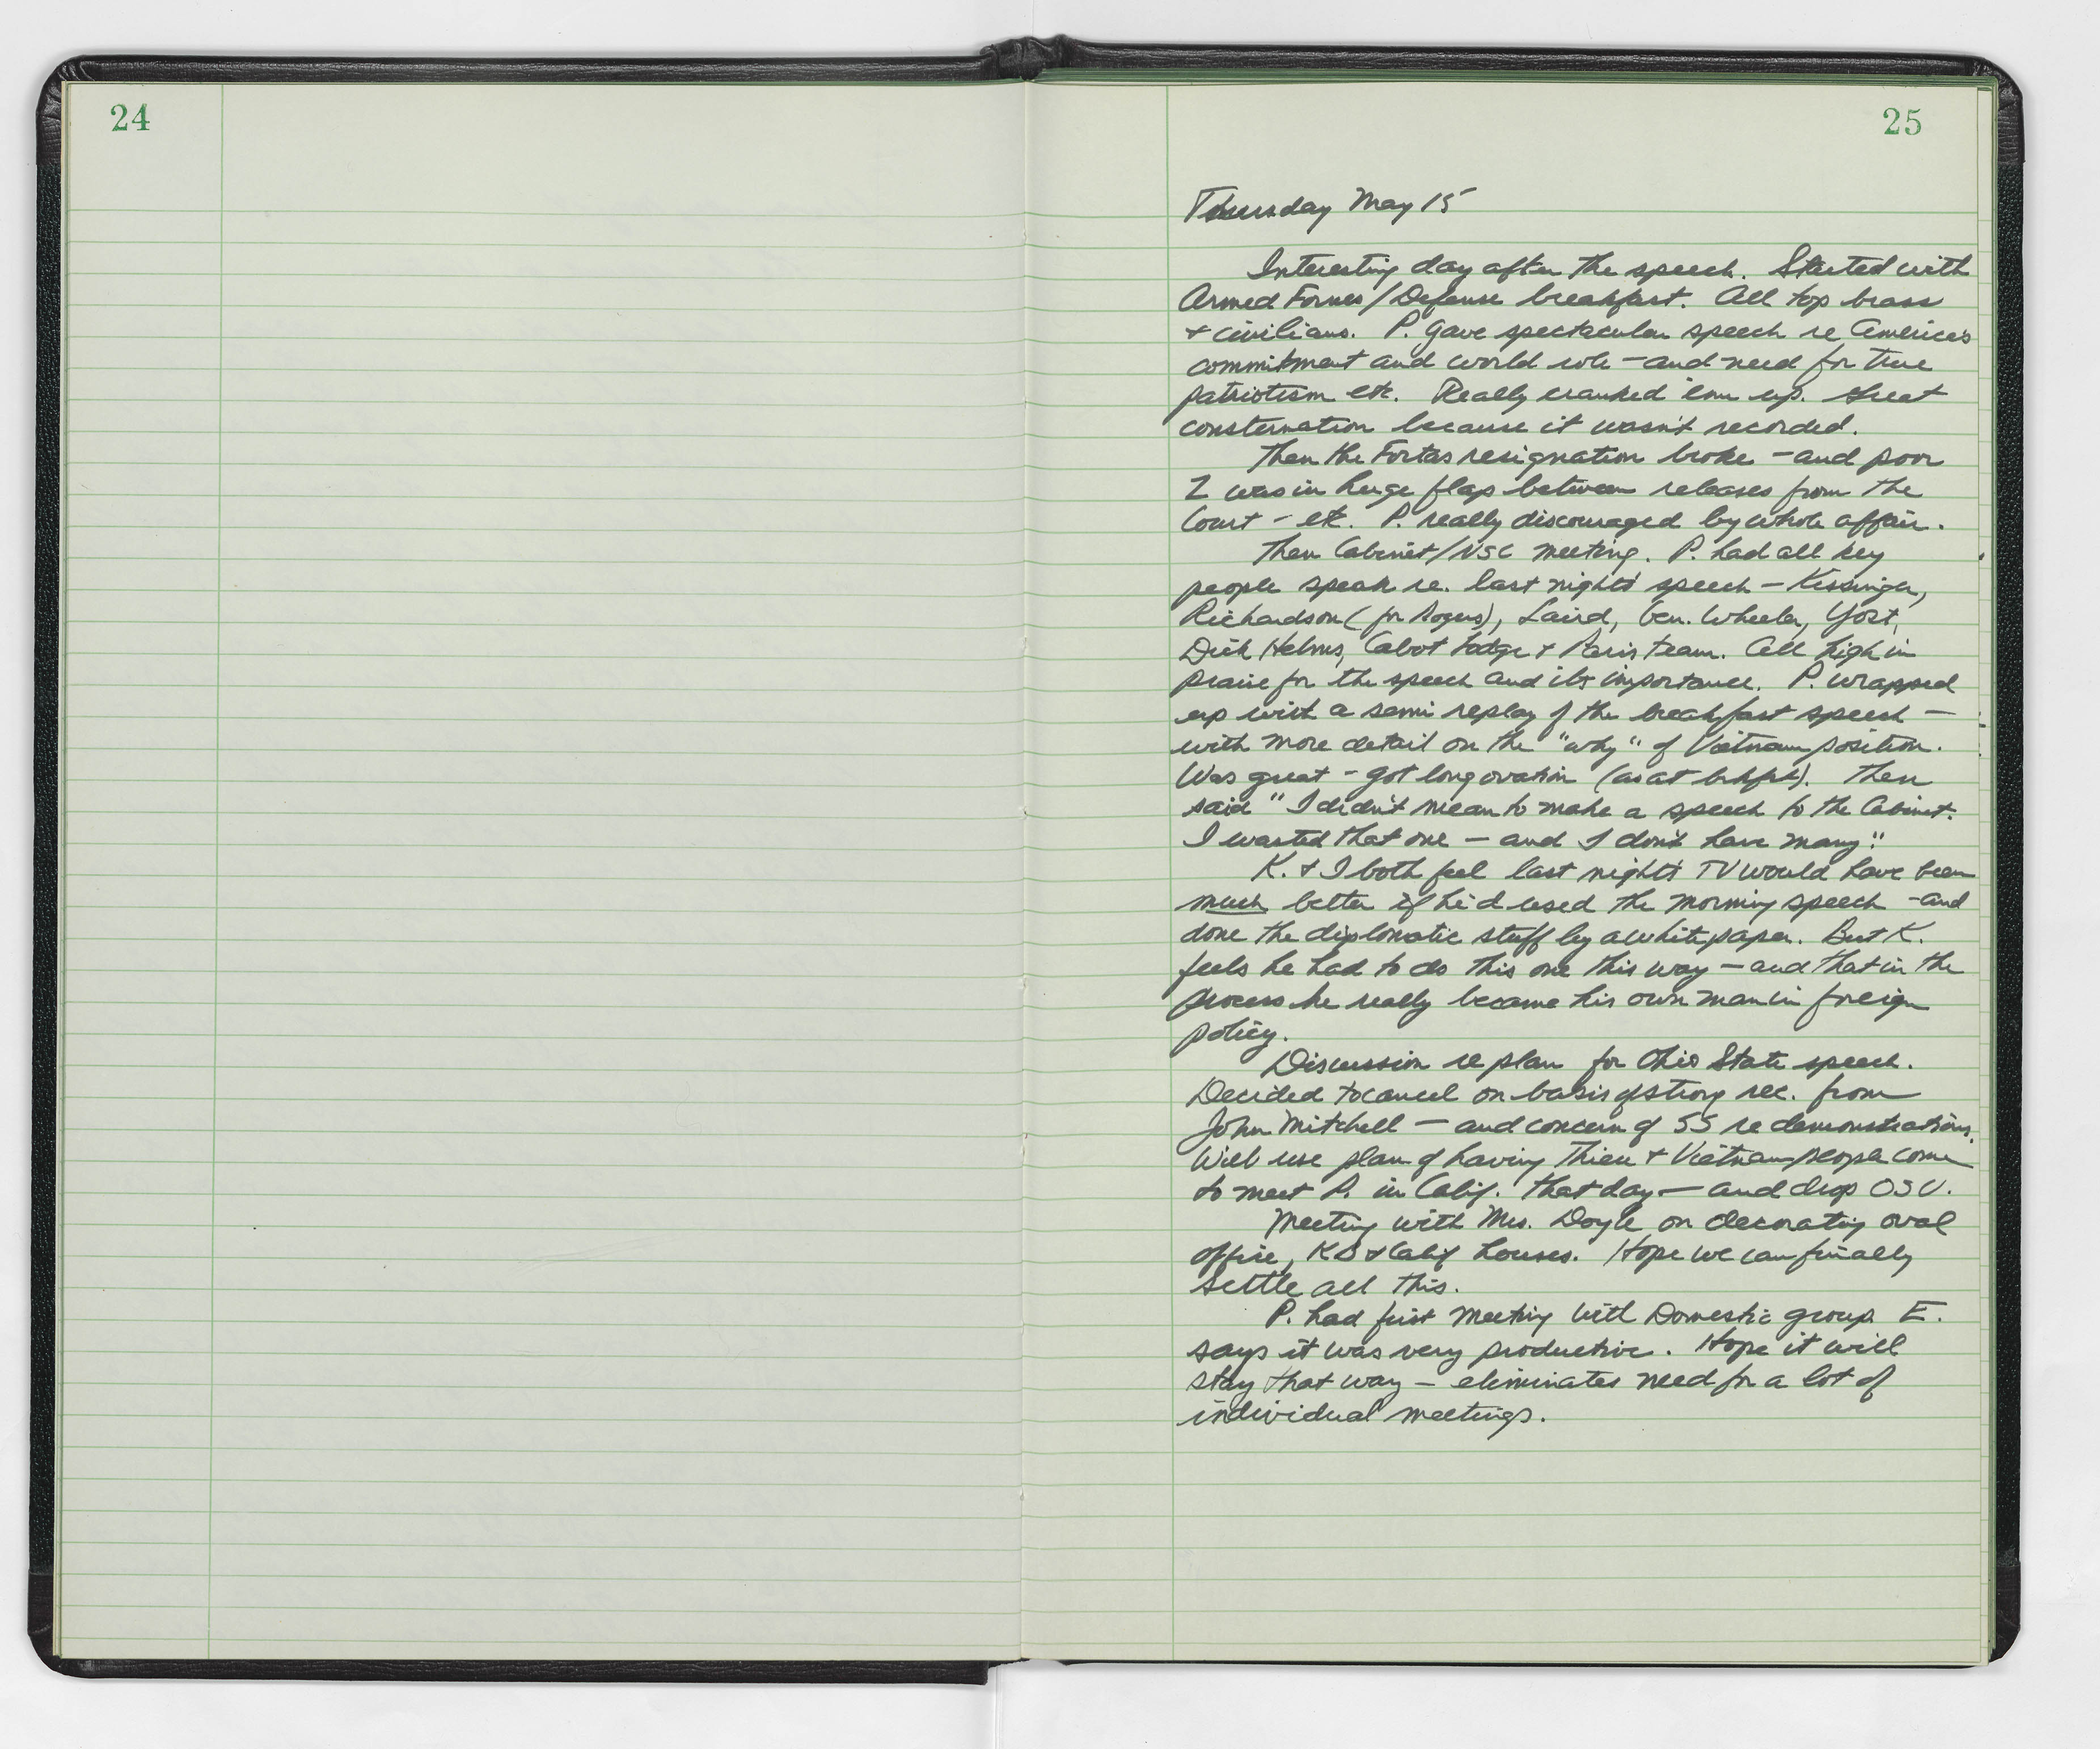 24
25
Thursday May 15
Interesting day after the speech. Started with
Armed Forces/Defense breakfast. All top brass
+ civilians. P. gave spectacular speech re America's
commitment and world role - and need for true
patriotism etc. Really cranked 'em up. Great
consternation because it wasn't recorded.
Then the Fortas resignation broke - and poor
Z was in huge flap between releases from the
Court - etc. P. really discouraged by whole affair.
Then Cabinet/NSC meeting. P. had all key
people speak re. last night's speech - Kissinger,
Richardson (for Rogers), Laird, Gen. Wheeler, Yost,
Dick Helms, Cabot Lodge + Paris team. All high in
praise for the speech and its importance. P. wrapped
up with a semi replay of the breakfast speech -
with more detail on the "why" of Vietnam position.
Was great - got long ovation (as at brkfst). Then
said "I didn't mean to make a speech to the Cabinet.
I wasted that one - and I don't have many."
K. + I both feel last night's TV would have been
much better if he'd used the morning speech - and
done the diplomatic stuff by a white paper. But K.
feels he had to do this one this way - and that in the
process he really became his own man in foreign
policy.
Discussion re plan for Ohio State speech.
Decided to cancel on basis of strong rec. from
John Mitchell - and concern of SS re demonstrations.
Will use plan of having Thieu + Vietnam people come
to meet P. in Calif. that day - and drop OSU.
Meeting with Mrs. Doyle on decorating oval
office, KB + Calif houses. Hope we can finally
settle all this.
P. had first meeting with Domestic group. E.
says it was very productive. Hope it will
stay that way - eliminates need for a lot of
individual meetings.